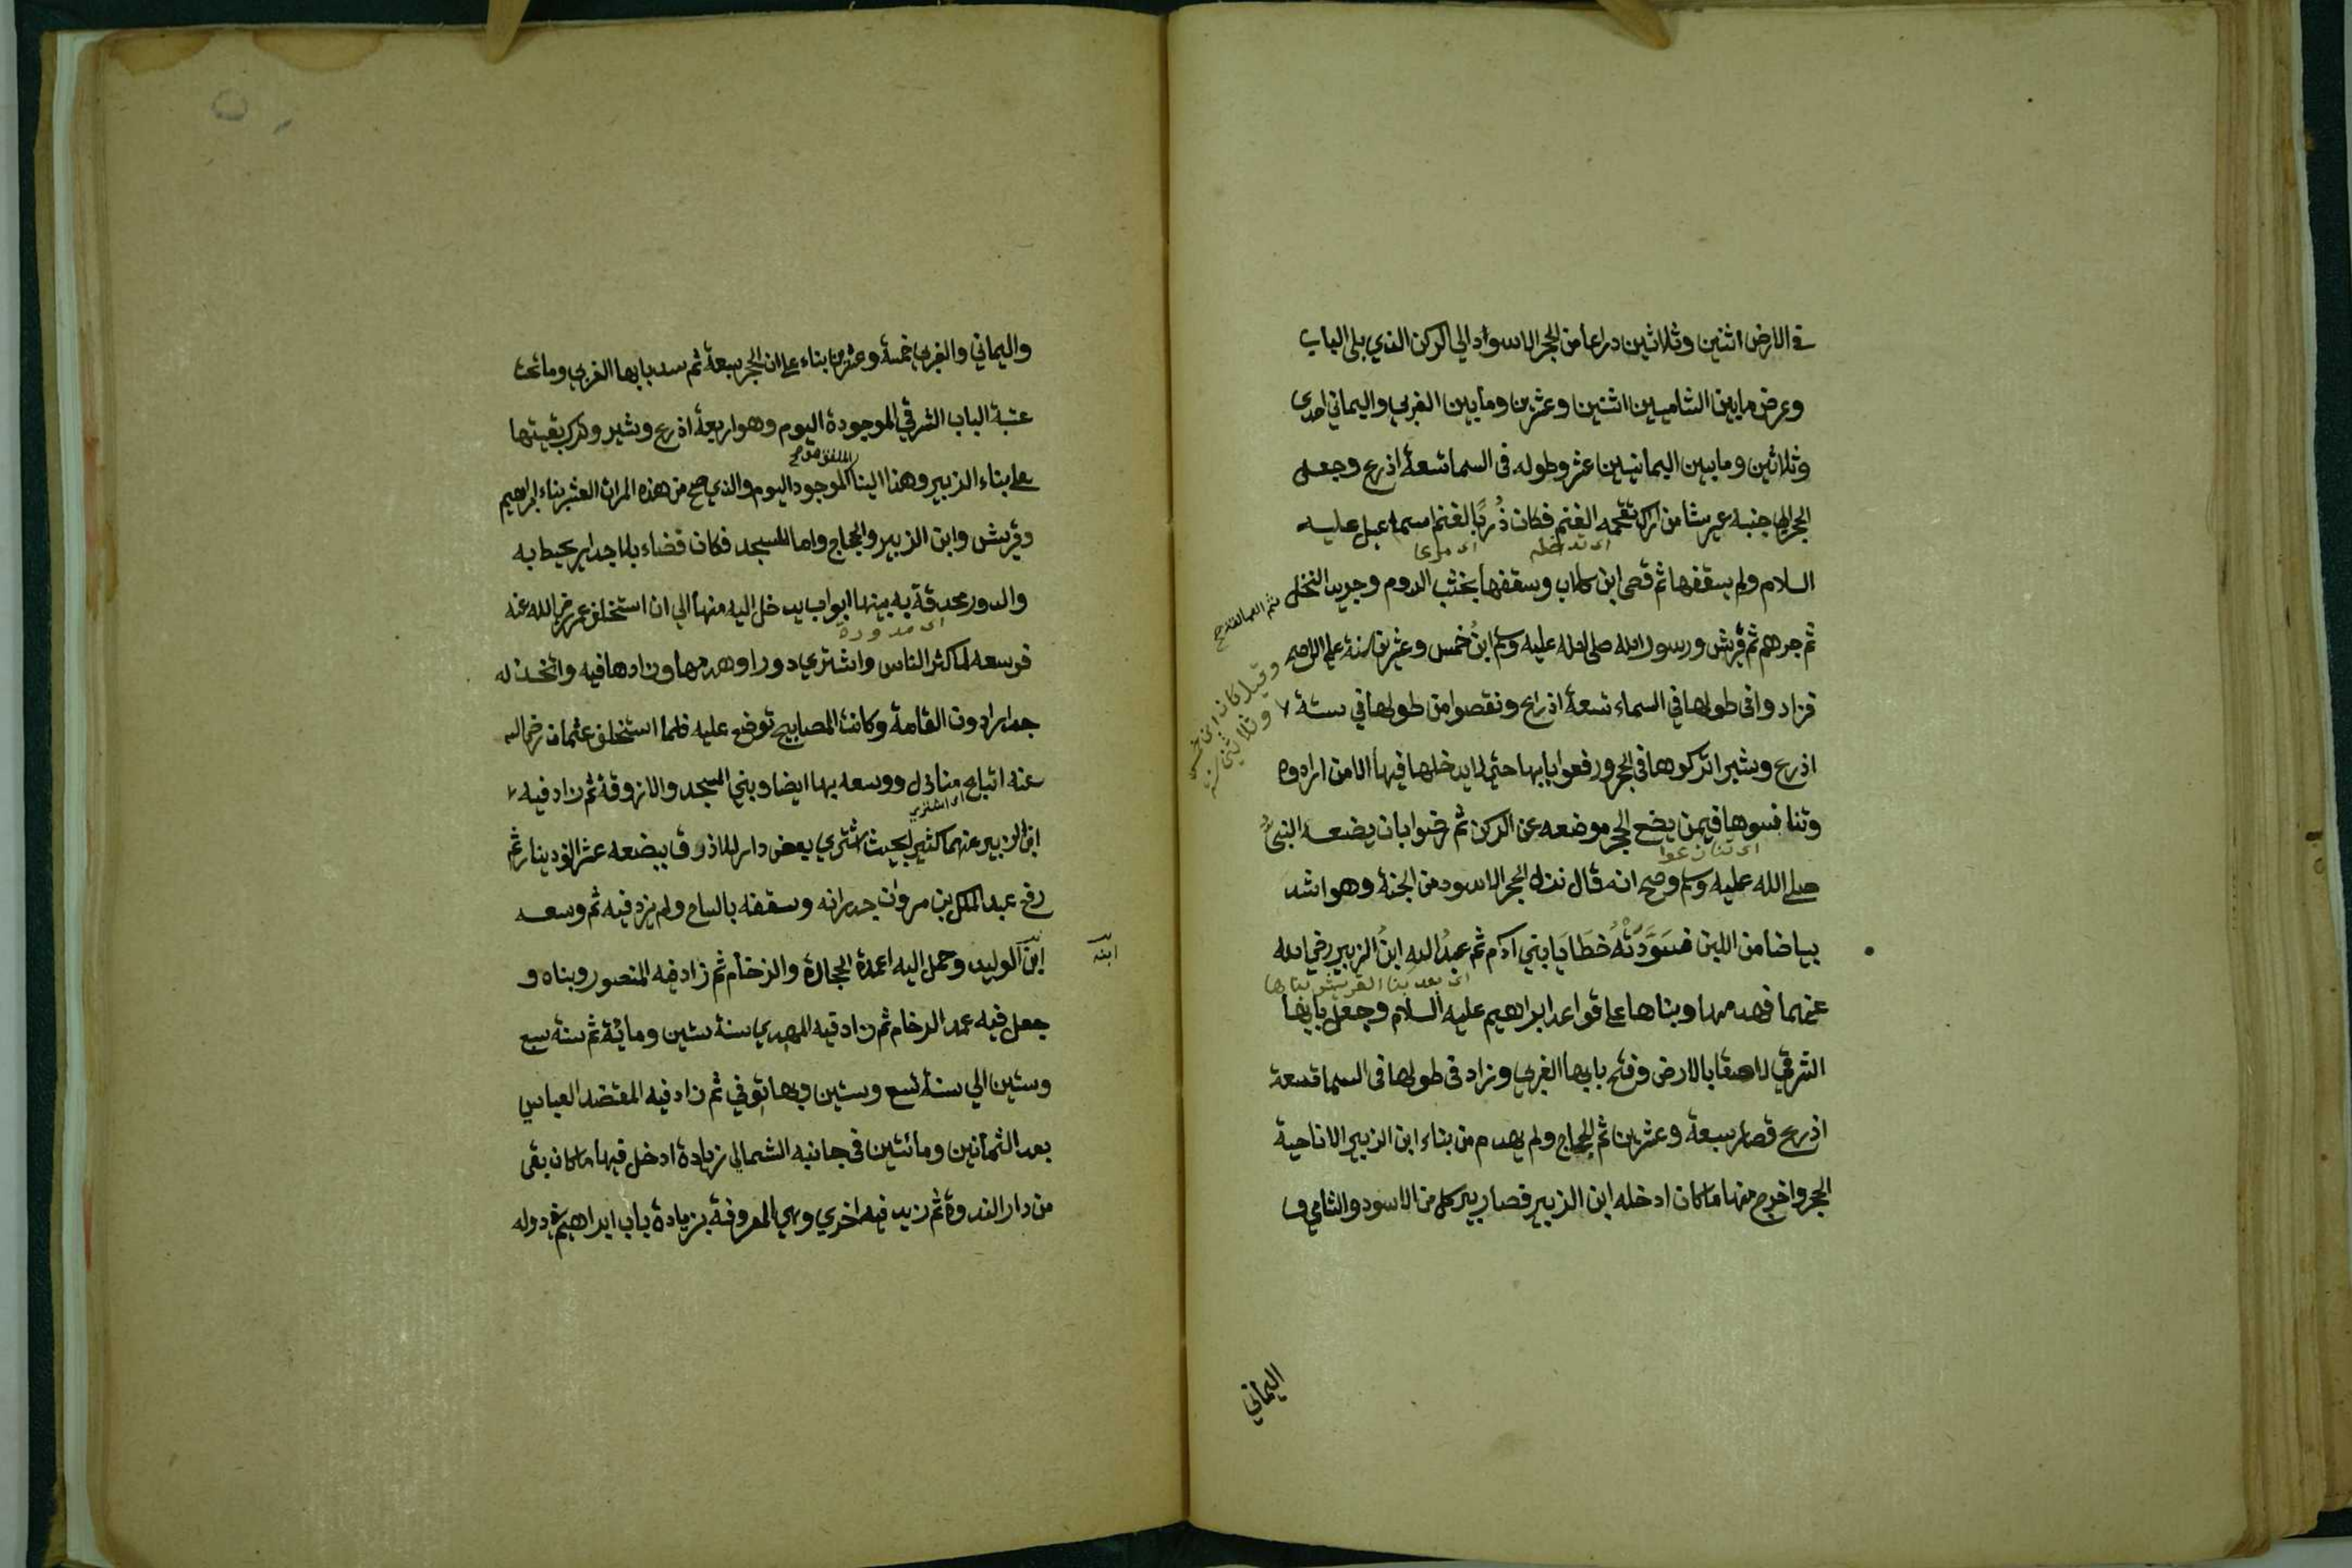 في الارض اثنين وثلاثين دراعا من الحجر الاسواد الي الركن الذي يلي الباب
وعرض ما بين الشاميين اثنين وعشرين وما بين الغربي واليماني احدى
وثلاثين وما بين اليمانيين عشر وطوله في السما تسعة اذرع وجعل
الحجر الي جنبه عريشا من اراك تقحمه الغنم فكان زُربًا لغنم اسماعيل عليه
اى تدخله اى مرعا
السلام ولم يسقفها ثم قصى ابن كلاب وسقفها بخشب الدوم وجريد النخل
ثم العمالقة صح
ثم جرهم ثم قريش ورسول الله صلى الله عليه وسلم ابنُ خمس وعشرين سنة علي الاصح
وقيل كان ابن خمس
وثلاثين سنة
فزادوا في طولها في السماء تسعة اذرع ونقصوا من طولها في ستة
اذرع وشبر اتركوها في الحجر ورفعوا بابها حتي لا يدخلها فيها الا من ارادوه
وتنافسوها فيمن يضع الحجر موضعه عن الركن ثم رضوا بان يضعه النبيُّ
اى تنازعوا
صلي الله عليه وسلم وصح انه قال نزل الحجر الاسود من الجنة وهو اشد
بياضا من اللبن فسَوَّدَتْهُ خطَايَا بني آدم ثم عبدُ الله ابنُ الزبير رضي الله
اى بعد بنا القريش بناها
عنهما فهدمها وبناها علي قواعد ابراهيم عليه السلام وجعل بابها
الشرقي لاصقا بالارض وفتح بابها الغربي وزاد في طولها في السما تسعة
اذرع فصار سبعة وعشرين ثم الحجاج ولم يهدم من بناء ابن الزبير الا ناحية
الحجر واخرج منها ما كان ادخله ابن الزبير فصار بير كل من الاسود والشامي و
اليماني
واليماني والغربي خمسة وعشرين بناء علي ان الحجر سبعة ثم سد بابها الغربي وما تحت
عتبة الباب الشرقي الموجودة اليوم وهو اربعة اذرع وشبر وترك بقيتها
علي بناء الزبير وهذا البنا الموجود اليوم والذي صح من هذه المرات العشر بناء ابراهيم
وقريش وابن الزبير والحجاج واما المسجد فكان فضاء بلا جدار يحيط به
والدور محدقة به بينها ابواب يدخل اليه منها الي ان استخلف عمر رضي الله عنه
اى مدورة
فوسعه لما كثر الناس واشتري دورا وهدمها وزادها فيه واتخذ له
جدارا دون القامة وكانت المصابيح توضع عليه فلما استخلف عثمان رضي الله
عنه ابتاع منازل ووسعه بها ايضا وبني المسجد والازوقة ثم زاد فيه
اى اشتري
ابن الزبير عنهما كثير بحيث اشتري بعض دار الاذرق ببضعه عشر الف دينار ثم
رفع عبد الملك بن مروان جدرانه وسقفه بالساج ولم يزد فيه ثم وسعه
ابن الوليد وحمل اليه اعمدة الحجارة والرخام ثم زاد فيه المنصور وبناه و
ابنه
جعل فيه عمد الرخام ثم زاد فيه المهدي سنة ستين ومائة ثم سنه سبع
وستين الي سنة تسع وستين وبها توفي ثم زاد فيه المقتضد العباسي
بعد الثمانين ومائتين في جانبه الشمالي زيادة ادخل فيها ما كان بقى
من دار الندوة ثم زيد فيه اخري وهي المعروفة بزيادة باب ابراهيم في دوله